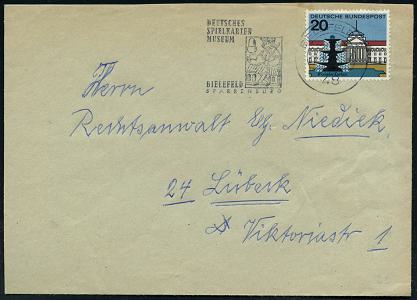 DEUTSCHES
SPIELKARTEN
MUSEUM
BIELEFELD
SPARRENBURG
DEUTSCHE BUNDESPOST
20
BIELEFELD
48
Herrn
Rechtsanwalt Niedick
24 Lübeck
Viktoriastr 1